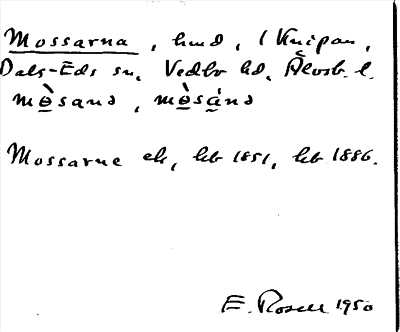 Mossarna, hmd, i Knipan,
Dals-Eds sn, Vedbo hd, Älvsb. l.
mɵ̀sanɔ, mɵ̀sánɔ
Mossarne ek, hb 1851, hb 1886.
E. Rosell 1950